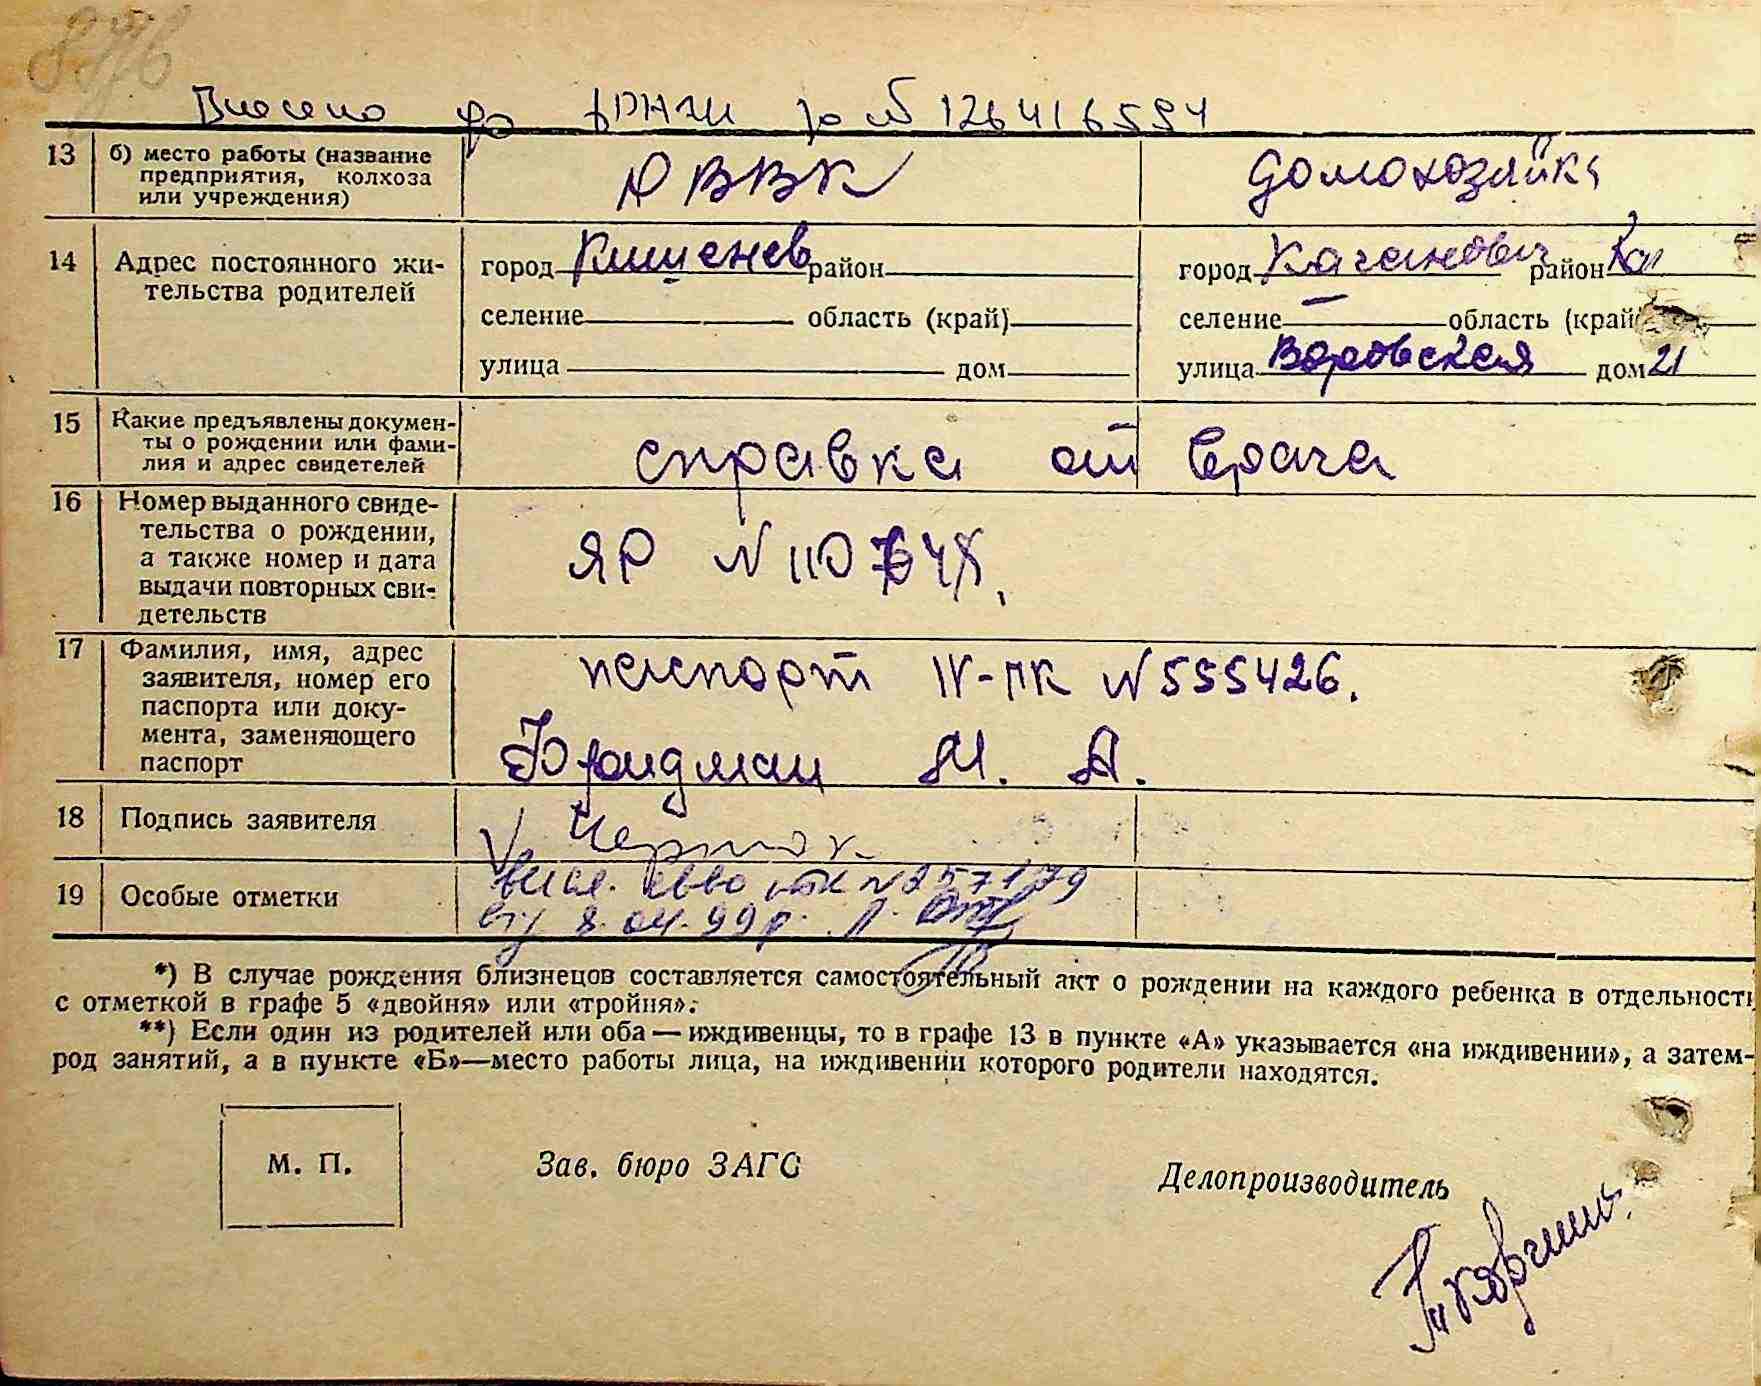 876
Внесено до ДРАЦС за № 126416594
13 б) место работы (название предприятия, колхоза или учреждения) ДВВК домохозяйка
14 Адрес постоянного жительства родителей
город Кишенев район город Каганович район
селение область (край) селение — область (край)
улица дом улица Воровская дом 21
15 Какие предъявлены документы о рождении или фамилия и адрес свидетелей справка от врача
16 Номер выданного свидетельства о рождении, а также номер и дата выдачи повторных свидетельств ЯР №
17 Фамилия, имя, адрес заявителя, номер его паспорта или документа, заменяющего паспорт
паспорт IV-ПК № 555426.
Фридман М. А.
18 Подпись заявителя Черток
19 Особые отметки
8.04.99р.
*) В случае рождения близнецов составляется самостоятельный акт о рождении на каждого ребенка в отдельности
с отметкой в графе 5 «двойня» или «тройня».
**) Если один из родителей или оба — иждивенцы, то в графе 13 в пункте «А» указывается «на иждивении», а затем—
род занятий, а в пункте «Б»—место работы лица, на иждивении которого родители находятся.
М. П. Зав. бюро ЗАГС Делопроизводитель